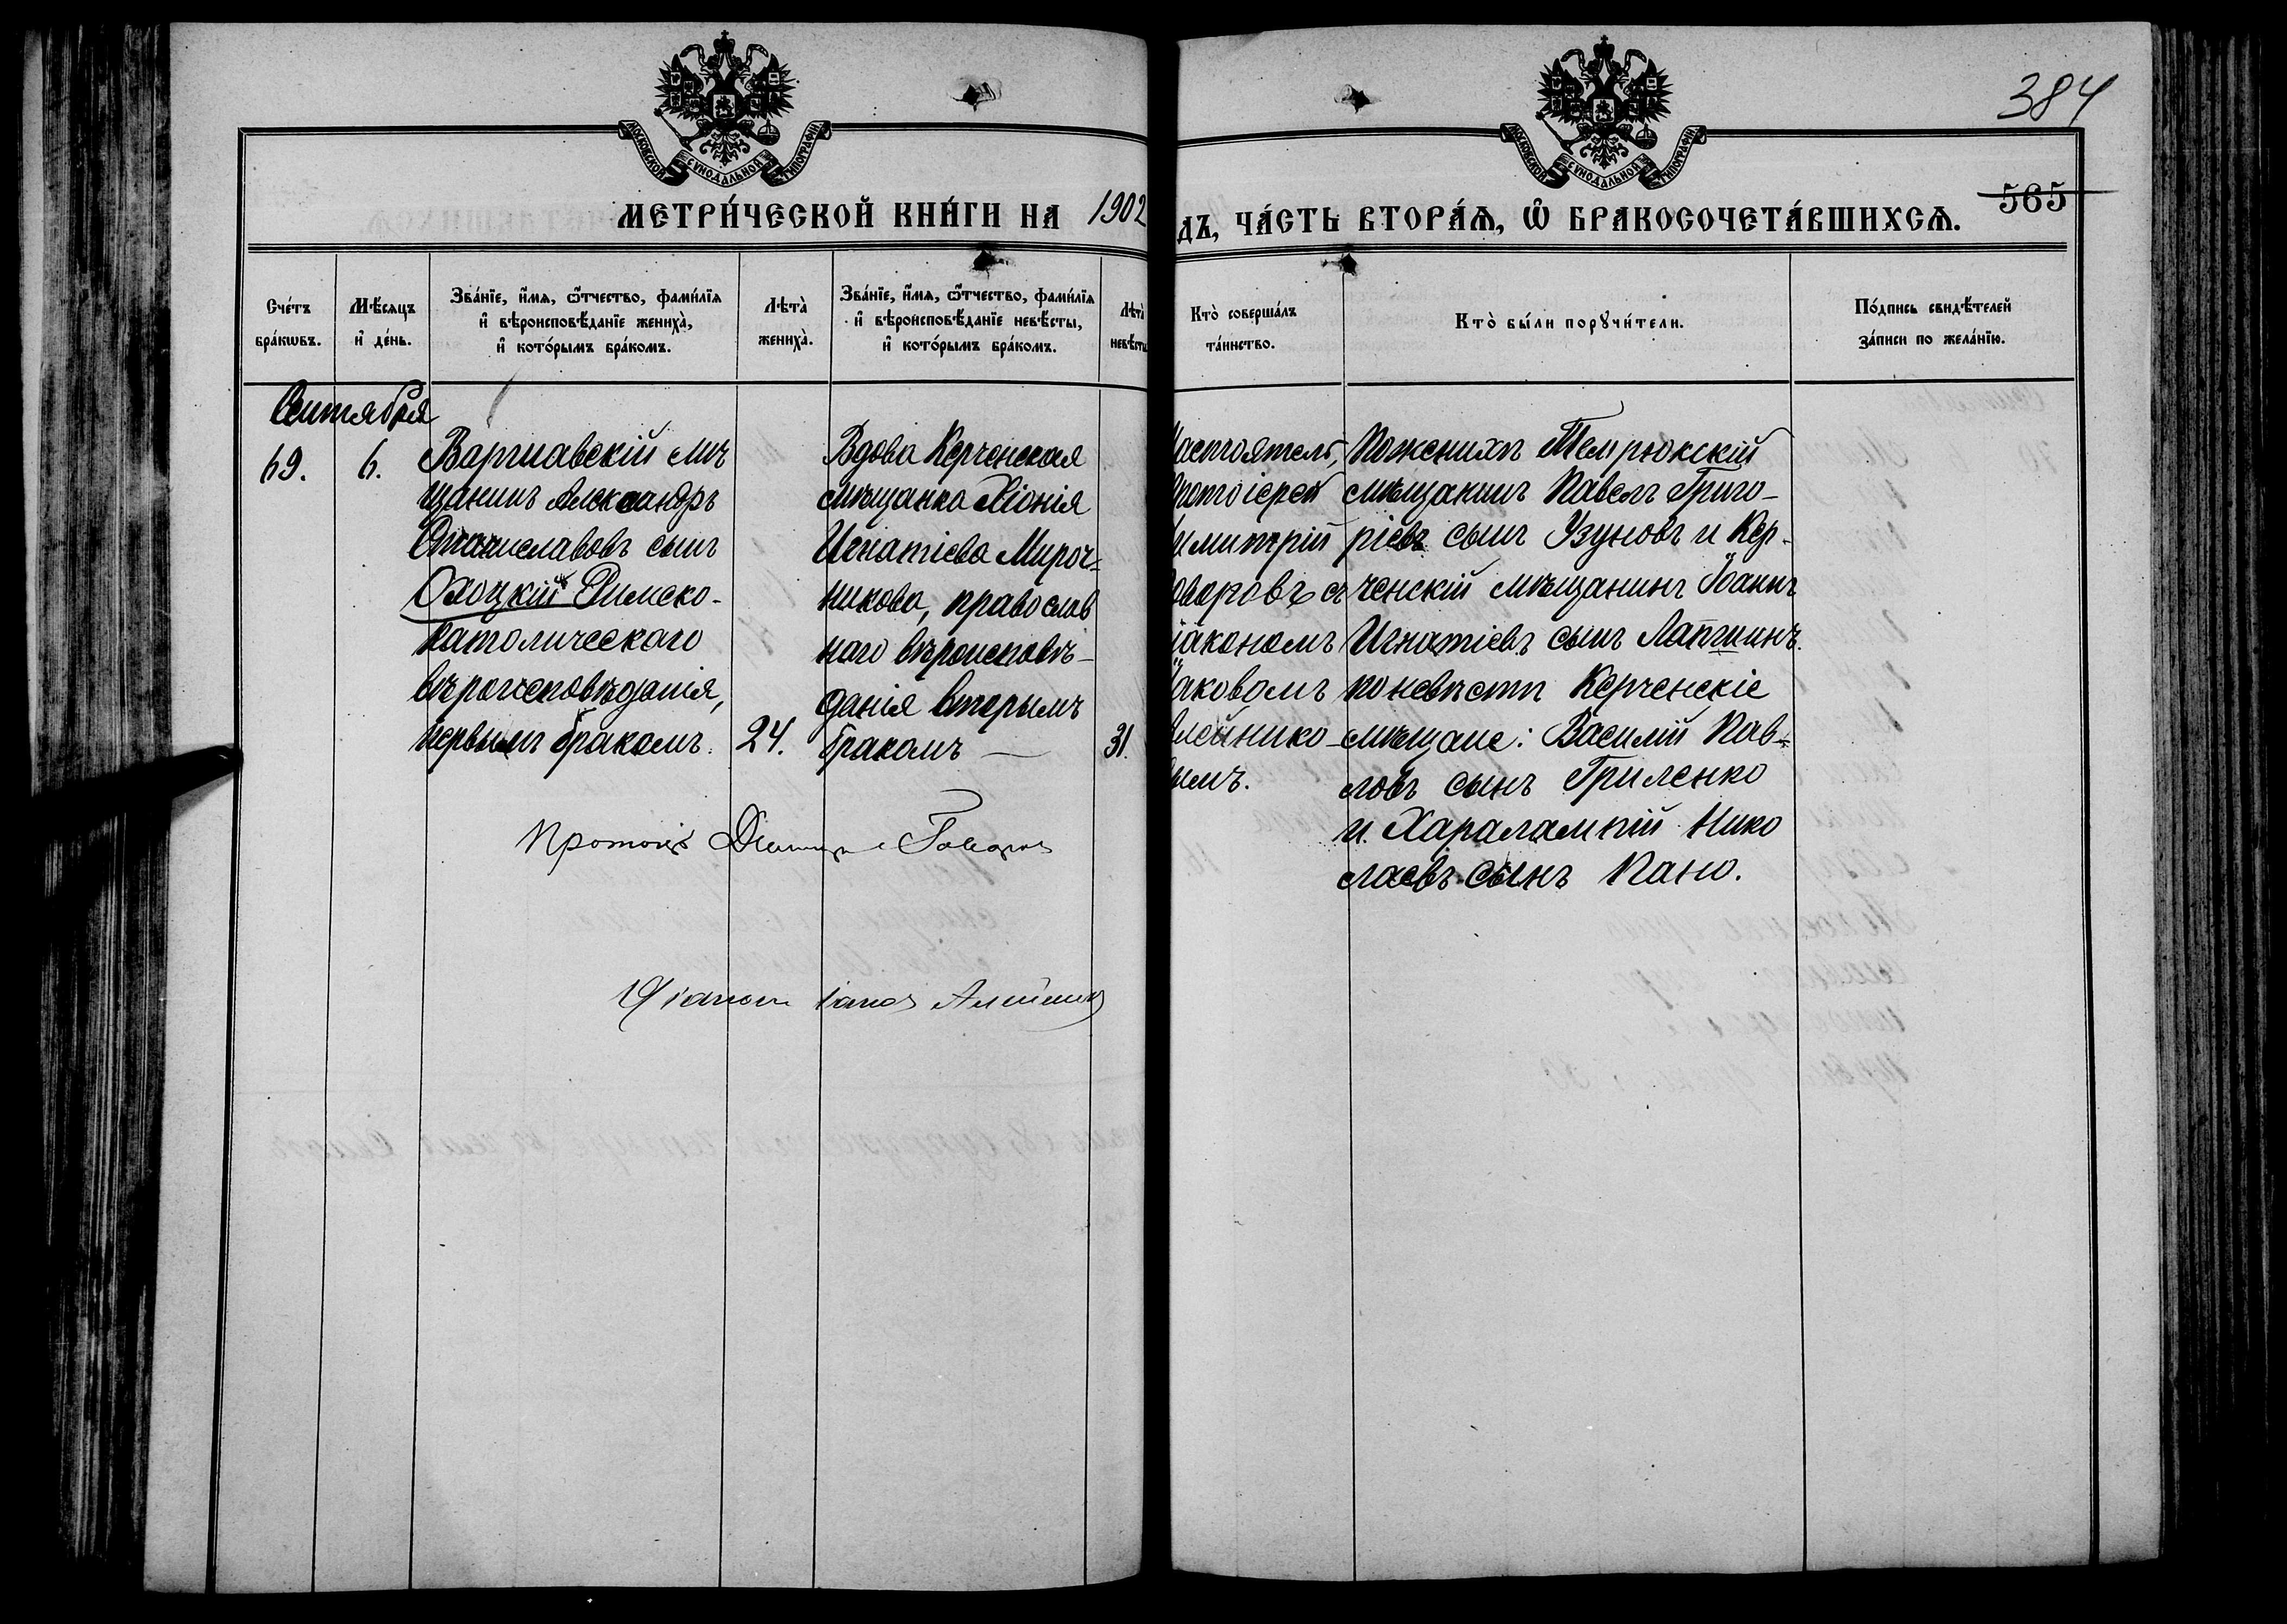 384
МОСКОВСКОЙ СѴНОДАЛЬНОЙ ТИПОГРАФІИ
МОСКОВСКОЙ СѴНОДАЛЬНОЙ ТИПОГРАФІИ
МЕТРИ́ЧЕСКОЙ КНИ́ГИ НА 1902
ДЪ, ЧА́СТЬ ВТОРА́Ѧ, Ѡ҆ БРАКОСОЧЕТА́ВШИХСѦ.
565
Сче́тъ
бра́кѡвъ.
Мѣ́сяцъ
и҆ де́нь.
Зва́нїе, и҆́мѧ, ѻ҆́тчество, фами́лїѧ
и҆ вѣроисповѣ́данїе жениха̀,
и҆ кото́рымъ бра́комъ.
Лѣта̀
жениха̀.
Зва́нїе, и҆́мѧ, ѻ҆́тчество, фами́лїѧ
и҆ вѣроисповѣ́данїе невѣ́сты,
и҆ кото́рымъ бра́комъ.
Лѣта̀
невѣ́сты
Кто̀ соверша́лъ
та́инство.
Кто̀ бы́ли порꙋчи́тели.
По́дпись свидѣ́телей
за́писи по жела́нїю.
Сентября
69.
6.
Варшавскій мѣ
щанинъ Александръ
Станиславовъ сынъ
Охоцкій Римско-
католическаго
вѣроисповѣданія,
первымъ бракомъ.
24.
Вдова Керченская
мѣщанка Хіонія
Игнатіева Мироч=
никова, православ
наго вѣроисповѣ-
данія вторымъ
бракомъ —
31.
астоятель,
ротоіерей
имитрій
оваровъ съ
іакономъ
аковомъ
лейнико-
ымъ.
По женихѣ Темрюкскій
мѣщанинъ Павелъ Григо-
ріевъ сынъ Узуновъ и Кер-
ченскій мѣщанинъ Іоаннъ
Игнатіевъ сынъ Лапшинъ.
по невѣстѣ Керченскіе
мѣщане: Василій Пав=
ловъ сынъ Гриленко
и Харалампій Нико
лаевъ сынъ Пано.
Протоіер Димитри Говоров
Діаконъ Іаков Алейник